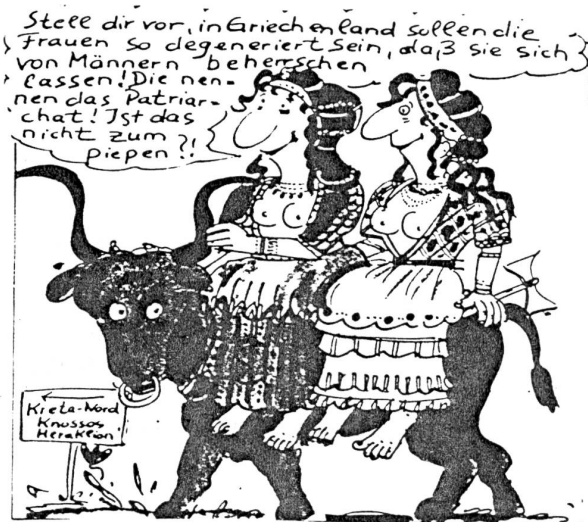 Stell dir vor, in Griechenland sollen die
Frauen so degeneriert sein, daß sie sich
von Männern beherrschen
lassen! Die nen-
nen das Patriar-
chat! Ist das
nicht zum
piepen?!
Kreta-Nord
Knossos
Heraklion